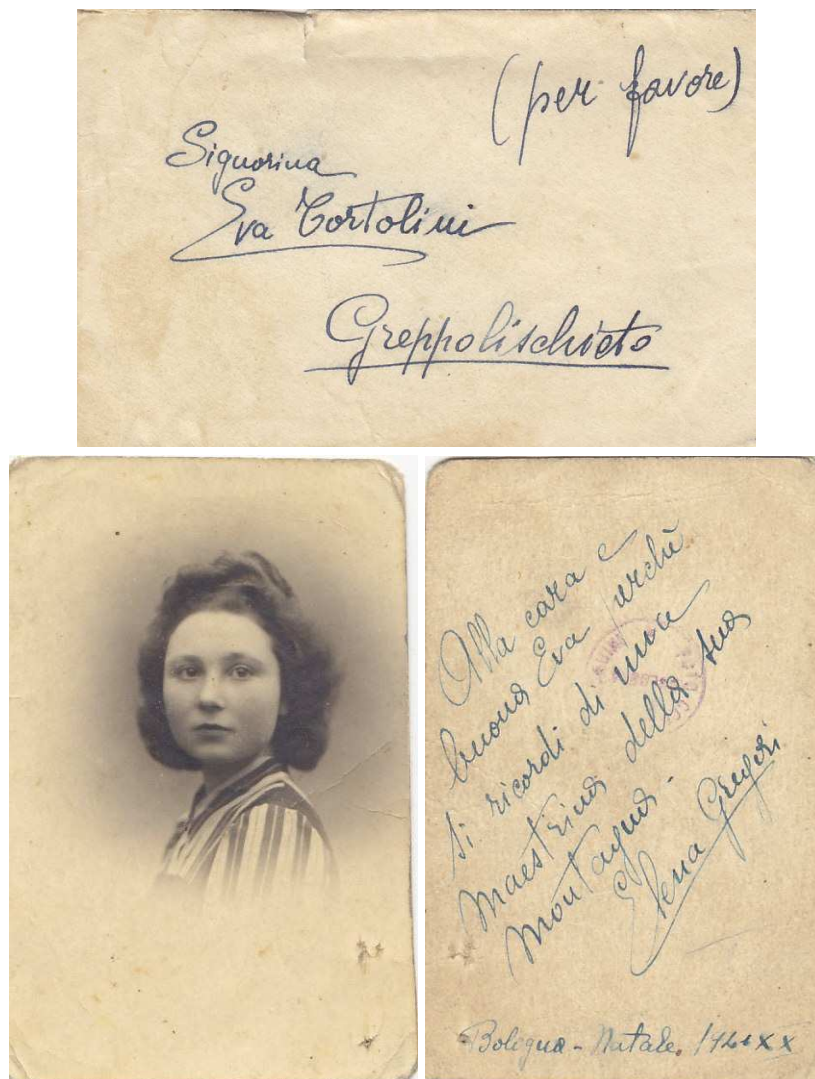 (per favore)
Signorina
Eva Tortolini
Greppolischieto
Alla cara e
buona Eva perchè
si ricordi di una
maestrina della sua
montagna -
Elena Grigori
Bologna - Natale.